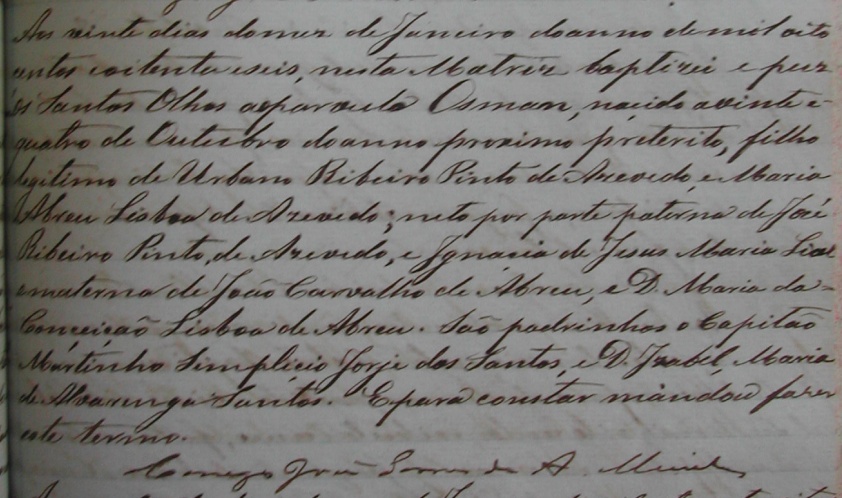 Aos vinte dias do mez de Janeiro do anno de mil oito
centos e oitenta e seis, nesta Matriz baptizei e puz
os Santos Olhos a oparvulo Osman, nacido a vinte e
quatro de Outubro do anno proximo preterito, filho
legitimo de Urbano Ribeiro Pinto de Azevedo, e Maria
Abreu Lisboa de Azevedo; neto por parte paterna de José
Ribeiro Pinto, de Azevedo, e Ignacia de Jesus Maria Leal
e materna de João Carvalho de Abreu, e D. Maria da
Conceição Lisboa de Abreu. São padrinhos o Capitão
Martinho Simplicio Jorje dos Santos, e D. Izabel Maria
de Alvarenga Santos. E para constar mandou fazer
este termo.
Conego José de A.